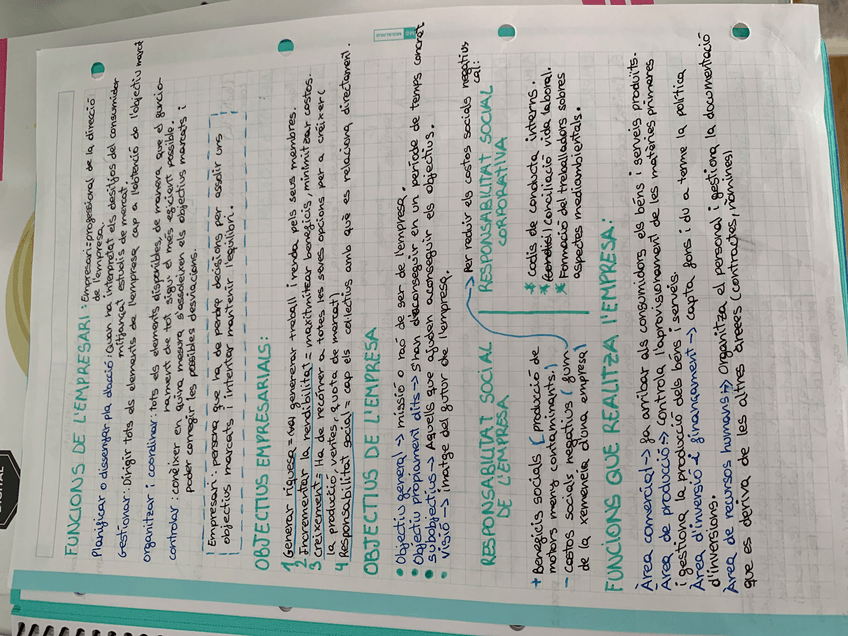 FUNCIONS DE L'EMPRESARI: Empresari=professional de la direcció
de l'empresa.
Planificar o dissenyar pla d'acció: Quan ha interpretat els desitjos del consumidor
mitjançat estudis de mercat.
Gestionar: Dirigir tots els elements de l'empresa cap a l'obtenció de l'objectiu marcat
organitzar i coordinar: tots els elements disponibles, de manera que el funcio-
nament de tot sigui el més eficient possible.
controlar: conèixer en quina mesura s'assoleixen els objectius marcats i
poder corregir les possibles desviacions.
Empresari: persona que ha de pendre decisions per assolir uns
objectius marcats i intentar mantenir l'equilibri.
OBJECTIUS EMPRESARIALS:
1 Generar riquesa = vol generar treball i renda pels seus membres.
2 Incrementar la rendibilitat = maximitzar beneficis, minimitzar costos.
3 creixement = Ha de recórrer a totes les seves opcions per a créixer (
la producció, ventes, quota de mercat)
4 Responsabilitat social = cap els col·lectius amb què es relaciona directament.
OBJECTIUS DE L'EMPRESA
• Objectiu general → missió o raó de ser de l'empresa.
• Objectiu propiament dits → S'han d'aconseguir en un període de temps concret
• subobjectius → Aquells que ajuden aconseguir els objectius.
• visió → imatge del futur de l'empresa.
RESPONSABILITAT SOCIAL
DE L'EMPRESA
+ Beneficis socials ( producció de
motors meny contaminants.)
- Costos socials negatius ( fum
de la xemeneia d'una empresa)
→ Per reduir els costos socials negatius
cal:
RESPONSABILITAT SOCIAL
CORPORATIVA
* Codis de conducta interns.
* Conciliació vida laboral.
* Formació del treballadors sobres
aspectes mediambientals.
FUNCIONS QUE REALITZA l'EMPRESA:
Àrea comercial → fa arribar als consumidors els béns i serveis produïts.
Àrea de producció → controla l'aprovisionament de les matèries primares
i gestiona la producció dels béns i serveis.
Àrea d'inversió i finançament → capta fons i du a terme la política
d'inversions.
Àrea de recursos humans → Organitza el personal i gestiona la documentació
que es deriva de les altres àrees (contractes, nòmines)